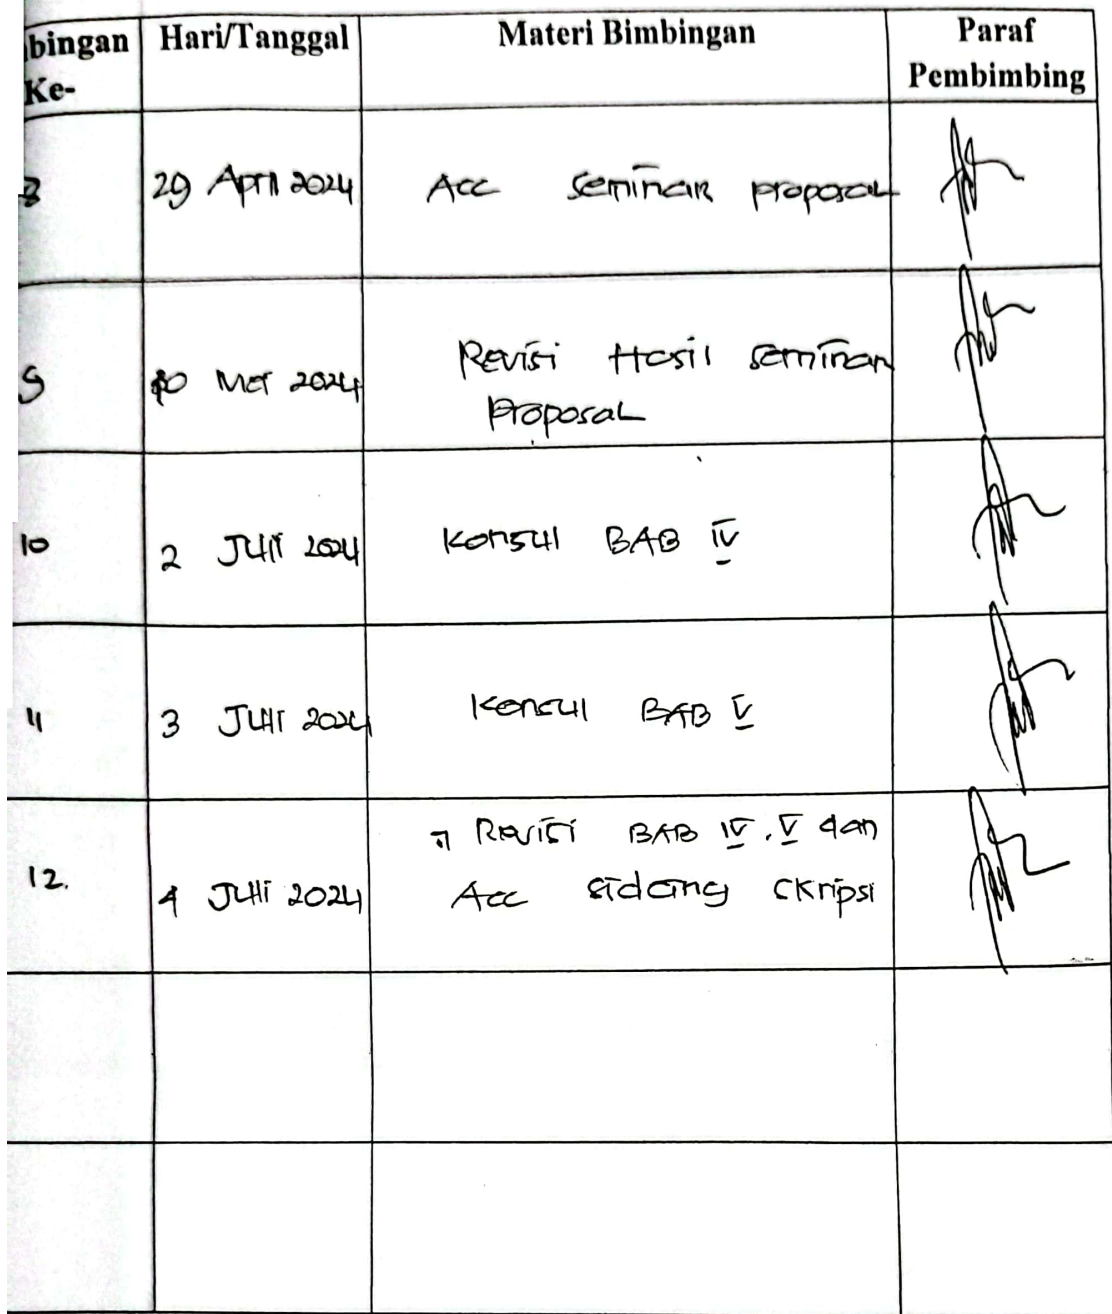 bingan Hari/Tanggal Materi Bimbingan Paraf
Ke- Pembimbing
8 29 April 2024 Acc seminar proposal
9 Mei 2024 Revisi Hasil seminar
proposal
10 2 Juli 2024 Konsul BAB IV
11 3 Juli 2024 Konsul BAB V
12. 4 Juli 2024 Revisi BAB IV, V dan
Acc sidang skripsi